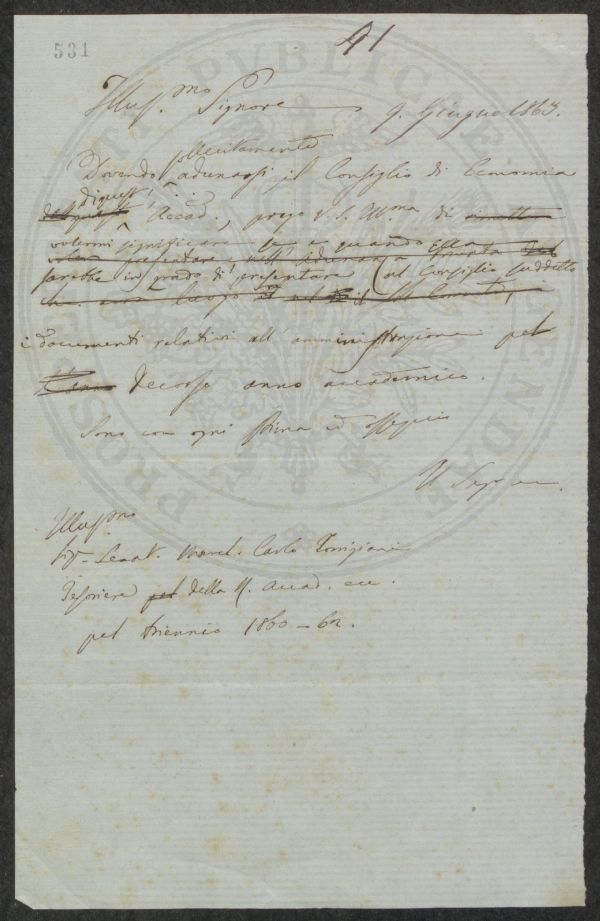 531
91
Illus.mo Signore 9. Giugno 1863.
sollecitamente
Dovendo adunarsi il Consiglio di Economia
di quest'
Accad., prego V. S. Ill.ma di
volermi significare se e quando ella
sarebbe in grado di presentare al Consiglio suddetto
i documenti relativi all'amministrazione pel
decorso anno accademico.
Sono con ogni stima ed ossequio
Il Segr
Illus.mo
Sig. Senat. March. Carlo Torrigiani
Tesoriere pel della R. Accad. ecc.
pel triennio 1860-62.
PROSPERITATI PVBLICAE AVGENDAE